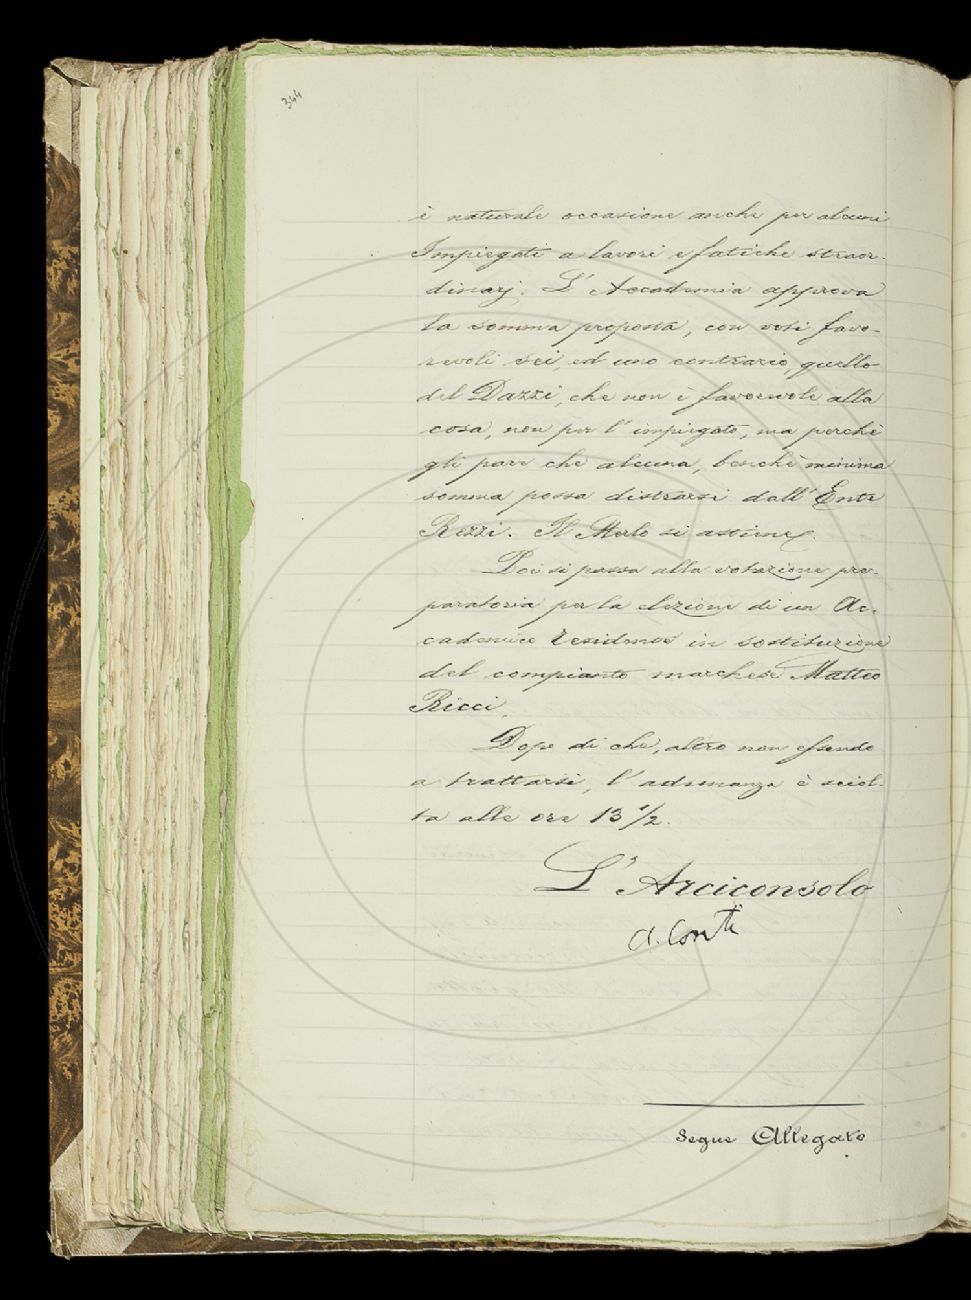 344
è naturale occasione anche per alcuni
Impiegati a lavori e fatiche straor-
dinarj. L'Accademia approva
la somma proposta, con voti favo-
revoli sei, ed uno contrario, quello
del Dazzi, che non è favorevole alla
cosa, non per l'impiegato, ma perchè
gli pare che alcuna, benchè minima
somma possa distrarsi dall'Ente
Rezzi. Il Merlo si astiene.
Poi si passa alla votazione pre-
paratoria per la elezione di un Ac-
cademico residente in sostituzione
del compianto marchese Matteo
Ricci.
Dopo di che, altro non essendo
a trattarsi, l'adunanza è sciol-
ta alle ore 13 1/2.
L'Arciconsolo
A. Conti
Segue Allegato